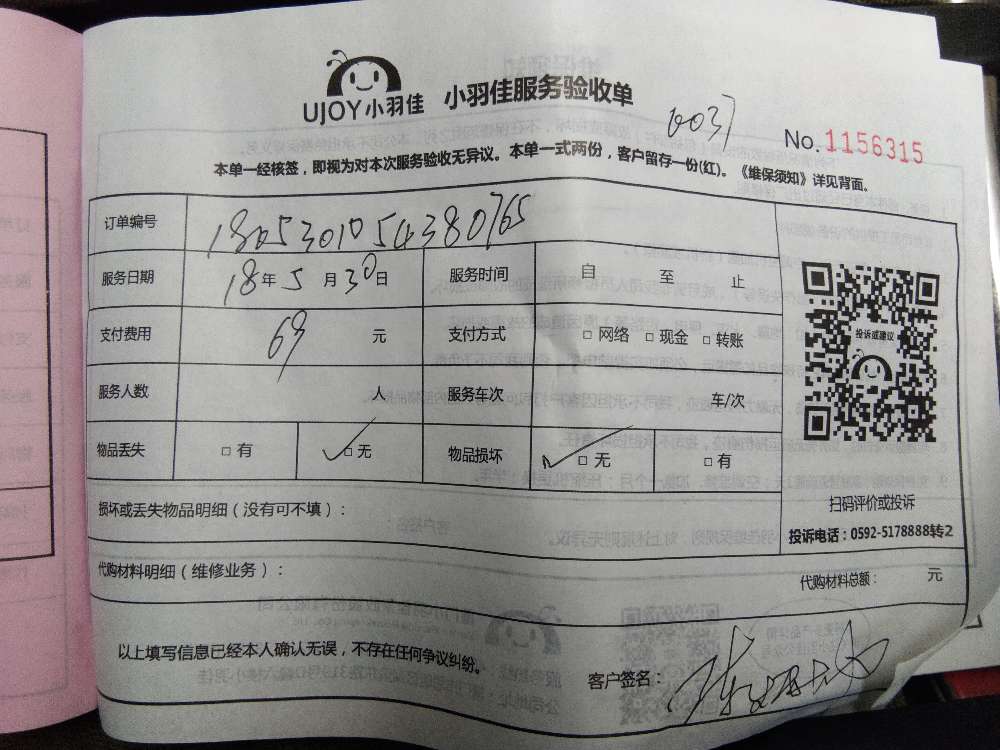 UJOY小羽佳 小羽佳服务验收单
6037
No. 1156315
本单一经核签，即视为对本次服务验收无异议。本单一式两份，客户留存一份(红)。《维保须知》详见背面。
订单编号 1805301054380765
服务日期 18年 5 月 30日 服务时间 自 至 止
支付费用 69 元 支付方式 □ 网络 □ 现金 □ 转账
服务人数 人 服务车次 车/次
物品丢失 □ 有 ☑ 无 物品损坏 ☑ 无 □ 有
投诉或建议
扫码评价或投诉
投诉电话：0592-5178888转2
损坏或丢失物品明细（没有可不填）：
代购材料明细（维修业务）：
代购材料总额： 元
以上填写信息已经本人确认无误，不存在任何争议纠纷。
客户签名：